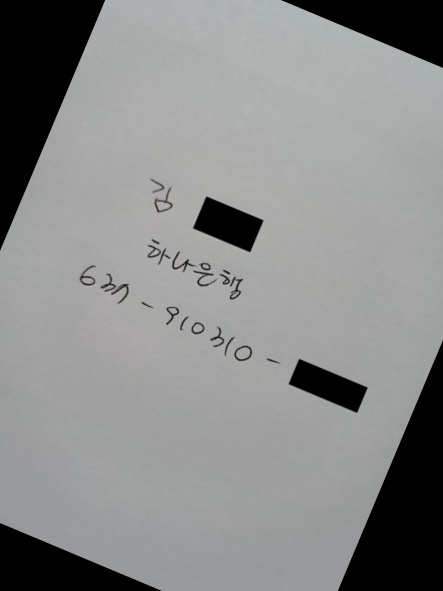 김
하나은행
637-910310-